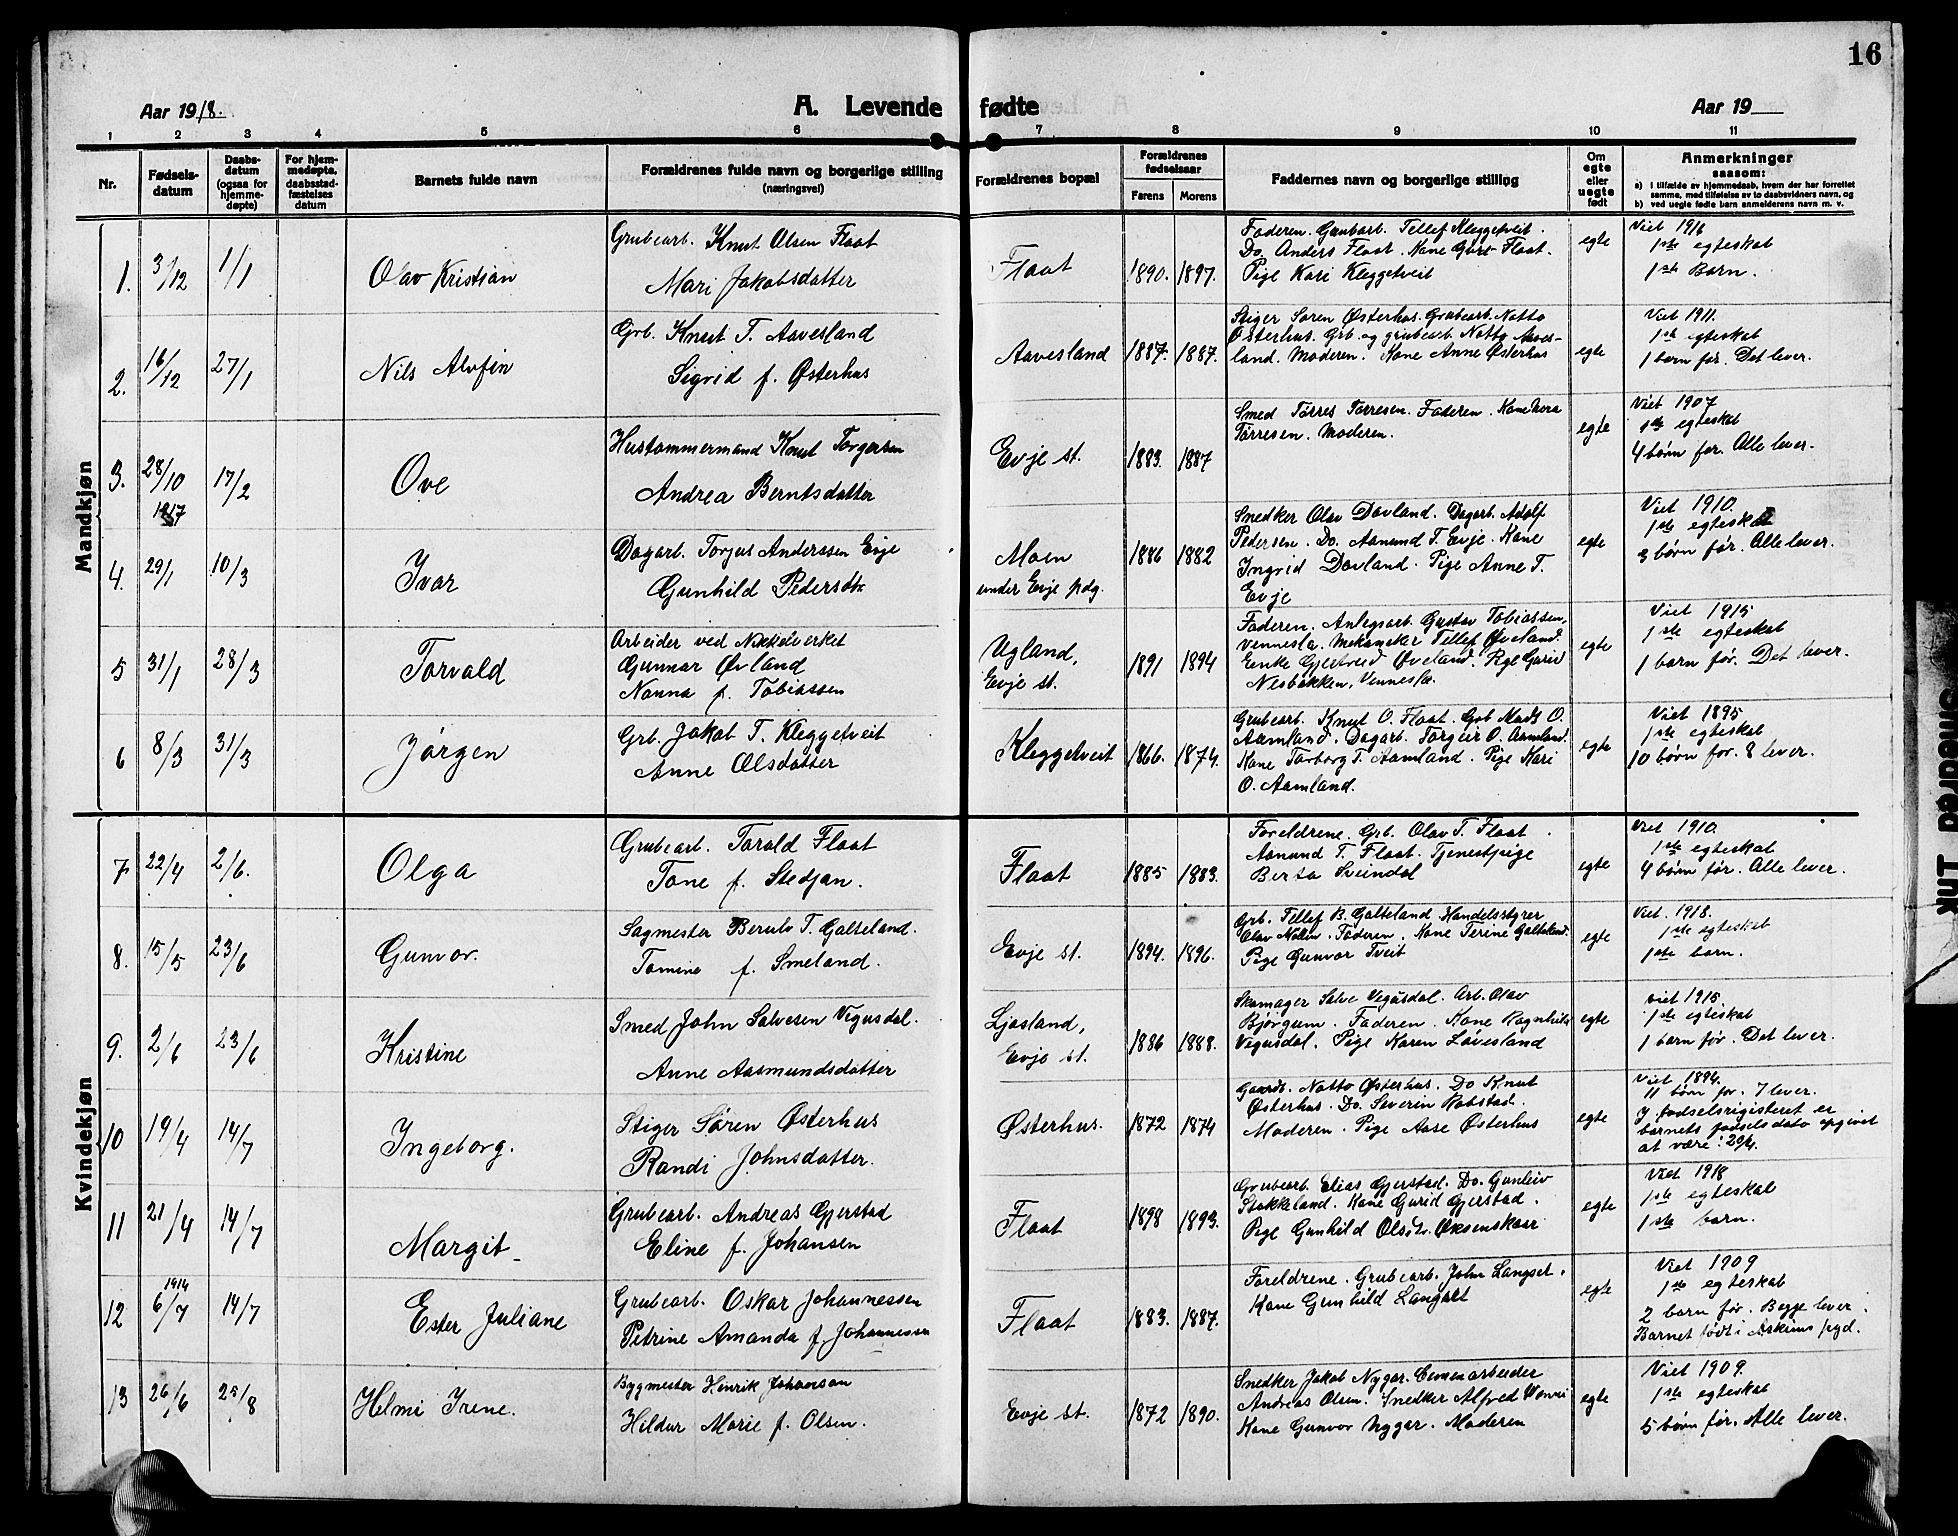 16
Aar 1918.
A. Levende fødte
Aar 19
1 2 3 4 5 6 7 8 9 10 11
Nr.
Fødsels-
datum
Daabs-
datum
(ogsaa for
hjemme-
døpte)
For hjem-
medøpte,
daabsstad-
fæstelses
datum
Barnets fulde navn
Forældrenes fulde navn og borgerlige stilling
(næringsvei)
Forældrenes bopæl
Forældrenes
fødselsaar
Farens Morens
Faddernes navn og borgerlige stilling
Om
egte
eller
uegte
født
Anmerkninger
saasom:
a) I tilfælde av hjemmedaab, hvem der har forrettet
samme, med tilføielse av to daabsvidners navn, og
b) ved uegte fødte barn anmelderens navn m. v.
Mandkjøn
1. 3/12 1/1 Olav Kristian
Grubearb. Knut Olsen Flaat
Mari Jakobsdatter
Flaat 1890. 1897.
Faderen. Grubearb. Tellef Kleggetveit.
Do. Anders Flaat. Kone Guro Flaat.
Pige Kari Kleggetveit
egte
Viet 1916
1ste egteskab
1ste Barn.
2. 16/12 27/1 Nils Alvfin
Grb. Knut T. Aavesland
Sigrid f. Østerhus
Aavesland 1887. 1887.
Stiger Søren Østerhus. Grubearb. Notto
Østerhus. Grb. og grubearb. Notto Aaves-
land. Moderen. Kone Anne Østerhus
egte
Viet 1911.
1ste egteskab
1 barn før. Det lever.
3. 28/10 1917 17/2 Ove
Hustømmermand Knut Torgersen
Andrea Berntsdatter
Evje st. 1883. 1887
Smed Tørres Tørresen. Faderen. Kone Nora
Tørresen. Moderen.
egte
Viet 1907
1ste egteskab
4 børn før. Alle lever.
4. 29/1 10/3 Ivar
Dagarb. Torjus Anderssen Evje
Gunhild Pedersdtr
Moen
under Evje pdg.
1886 1882
Snedker Olav Dovland. Dagarb. Adolf
Pedersen. Do. Aanund T. Evje. Kone
Ingrid Dovland. Pige Anne T.
Evje
egte
Viet 1910.
1ste egteskab
3 børn før. Alle lever.
5 31/1 28/3 Torvald
Arbeider ved Nikkelverket
Gunnar Øvland
Nanna f. Tobiassen
Ugland,
Evje st.
1891 1894
Faderen. Anlegsarb. Gustav Tobiassen,
Vennesla. Mekaniker Tellef Øveland.
Enke Gjertrud Øveland. Pige Gurid
Nesbakken, Vennesla.
egte
Viet 1915
1ste egteskab
1 barn før. Det lever.
6 8/3 31/3 Jørgen
Grb. Jakob T. Kleggetveit
Anne Olsdatter
Kleggetveit 1866. 1874.
Grubearb. Knut O. Flaat. Grb Mads O.
Aamland. Dagarb. Torgeir O. Aamland.
Kone Torborg T. Aamland. Pige Kari
O. Aamland.
egte
Viet 1895
1ste egteskab
10 børn før. 8 lever.
Kvindekjøn
7 22/4 2/6. Olga
Grubearb. Torald Flaat
Tone f. Stedjan.
Flaat 1885 1883.
Foreldrene. Grb. Olav T. Flaat
Aanund T. Flaat. Tjenestpige
Berta Sveindal
egte
Viet 1910.
1ste egteskab
4 børn før. Alle lever.
8. 15/5 23/6 Gunvor.
Sagmester Berulv T. Galteland.
Tomine f. Smeland.
Evje st. 1894. 1896.
Grb. Tellef B. Galteland. Handelsstyrer
Olav Faderen. Kone Terine Galteland.
Pige Gunvor Tveit
egte
Viet. 1918.
1ste egteskab
1ste barn.
9. 2/6 23/6 Kristine
Smed John Salvesen Vegusdal.
Anne Aasmundsdatter
Ljosland,
Evje st.
1886 1888.
Skomager Salve Vegusdal. Arb. Olav
Bjørgum. Faderen. Kone Ragnhild
Vegusdal. Pige Karen Løvesland
egte
viet 1915
1ste egteskab
1 barn før. Det lever.
10 19/4 14/7 Ingeborg.
Stiger Søren Østerhus
Randi Johnsdatter.
Østerhus. 1872 1874
Gaardb. Notto Østerhus. Do Knut
Østerhus. Do. Severin Robstad.
Moderen. Pige Aase Østerhus
egte
Viet 1894.
11 børn før. 7 lever.
I fødselsregisteret er
barnets fødselsdato opgivet
at være: 20/4.
11 21/4 14/7 Margit
Grubearb. Andreas Gjerstad
Eline f. Johansen
Flaat 1898 1893.
Grubearb Elias Gjerstad. Do. Gunleiv
Stokkeland. Kone Gurid Gjerstad.
Pige Gunhild Olsdtr. Oksenskaar
egte
Viet 1918
1ste egteskab
1ste barn.
12 1914 6/7 14/7 Ester Juliane
Grubearb. Oskar Johannessen
Petrine Amanda f. Johannessen
Flaat 1883. 1887.
Foreldrene. Grubearb. John Langset.
Kone Gunhild Langset
egte
Viet 1909
1ste egteskab
2 barn før. Begge lever.
Barnet født i Askims pgd.
13 26/6 25/8 Helmi Irene.
Bygmester Henrik Johanson
Hildur Marie f. Olsen.
Evje st. 1872 1890.
Snedker Jakob Nygar. Ementarbeider
Andreas Olsen. Snedker Alfred
Kone Gunvor Nygar. Moderen
egte
Viet 1909.
1ste egteskab
5 børn før. Alle lever.